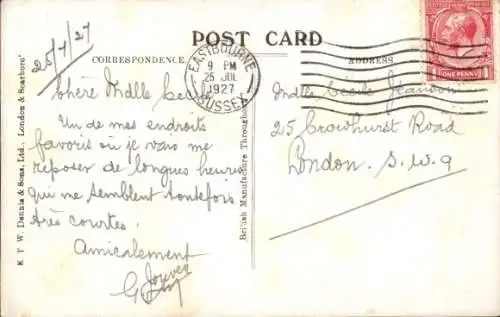 POST CARD
CORRESPONDENCE.
ADDRESS
EASTBOURNE
9 PM
25 JUL
1927
SUSSEX
ONE PENNY
E. T. W. Dennis & Sons, Ltd., London & Scarboro'
British Manufacture Throughout
25/7/27
Chère Mdlle
Un de mes endroits
favoris où je vais me
reposer de longues heures
qui me semblent toutefois
très courtes.
Amicalement
G
Mdlle Cecile
25 Crowhurst Road
London. S.W.9